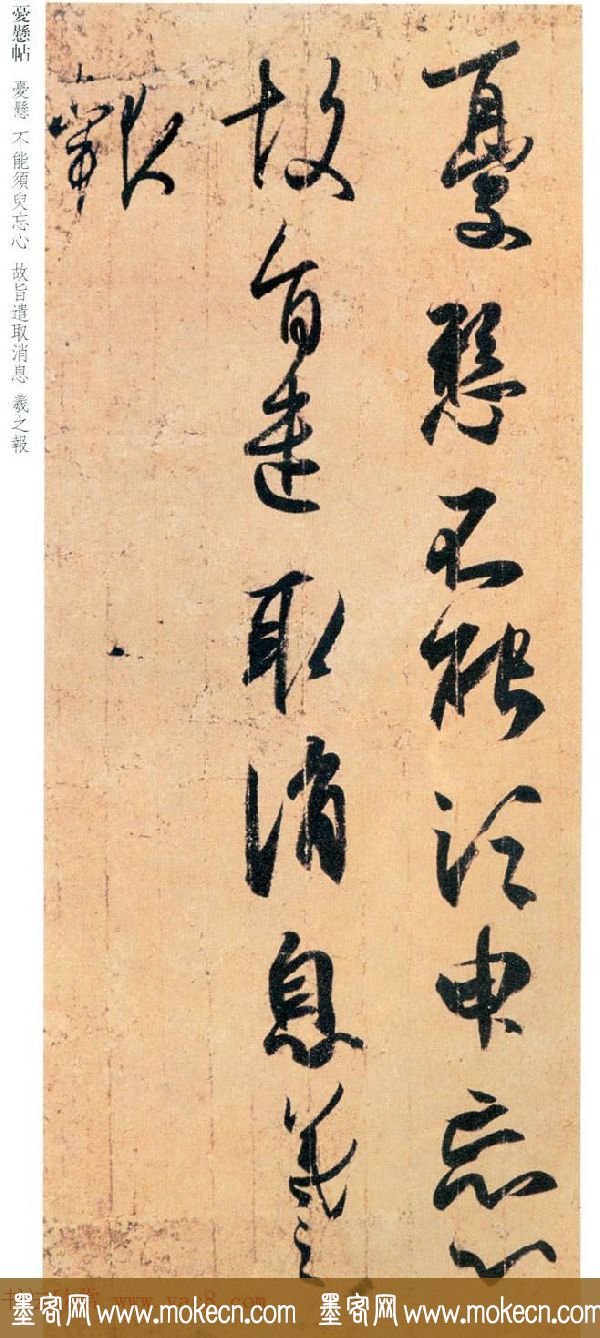 憂懸不能須臾忘心
故旨遣取消息羲之
報
憂懸帖 憂懸 不能須臾忘心 故旨遣取消息 羲之報
墨客网 www.mokecn.com 墨客网 www.mokecn.com